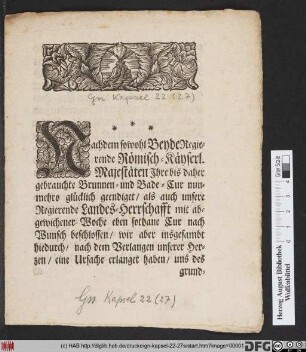 Gm Kapsel 22 (27)
Nachdem sowohl Beyde Regie-
rende Römisch-Käyserl.
Majestäten Ihre bis daher
gebrauchte Brunnen- und Bade-Cur nun-
mehro glücklich geendiget / als auch unsere
Regierende Landes-Herrschafft mit ab-
gewichener Woche eben sothane Cur nach
Wunsch beschlossen / wir aber insgesamt
hiedurch / nach dem Verlangen unserer Her-
zen / eine Ursache erlanget haben / uns des
grund-
Gm Kapsel 22 (27)
Herzog August Bibliothek
Wolfenbüttel
(c) HAB http://diglib.hab.de/drucke/gn-kapsel-22-27s/start.htm?image=00001
gefördert von der
DFG